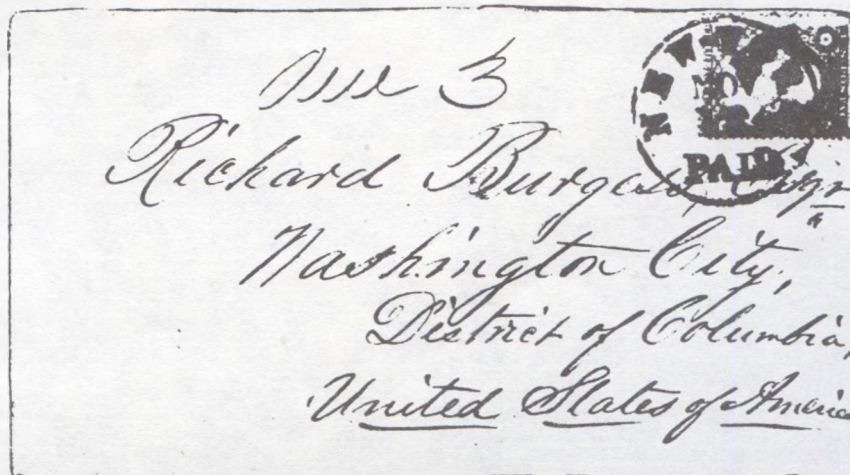 Due 3
NEW-Y
NO
PAID
Richard Burgess, Esqr
Washington City,
District of Columbia,
United States of America